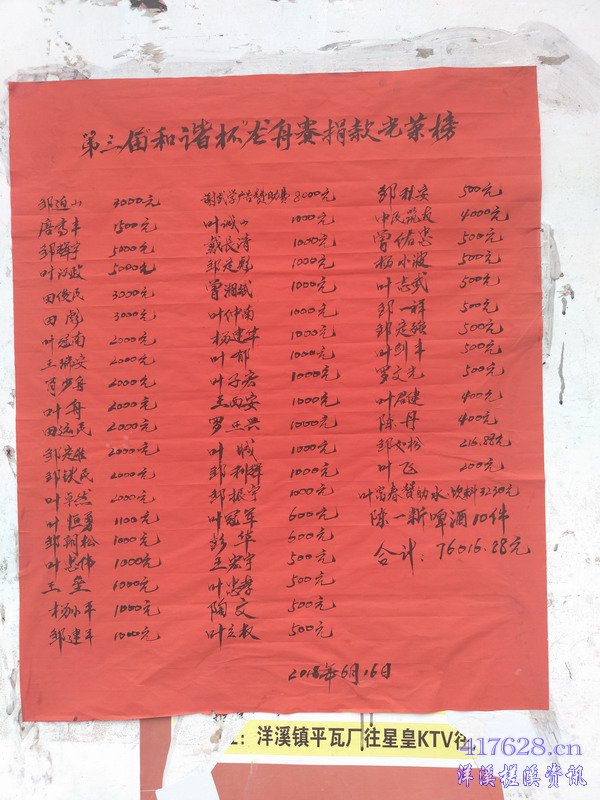 第三届"和谐杯"龙舟赛捐款光荣榜
3000元
唐高丰 1500元
邹辉宇 5000元
叶汉政 5000元
田俊民 3000元
田彪 3000元
叶冠南 2000元
王瑞安 2000元
2000元
叶舟 2000元
田运民 2000元
邹定雄 2000元
2000元
叶卓然 2000元
叶恒勇 1100元
邹翔松 1000元
叶忠伟 1000元
王垒 1000元
杨小平 1000元
邹建平 1000元
3000元
叶诚山 1000元
戴长清 1000元
邹定魁 1000元
曾湘斌 1000元
叶仲南 1000元
杨建华 1000元
叶郁 1000元
叶子君 1000元
王西安 1000元
罗正兴 1000元
叶城 1000元
邹利辉 1000元
邹振宇 1000元
叶冠军 600元
彭华 600元
王宏宇 500元
叶忠孝 500元
陶文 500元
叶立权 500元
500元
4000元
曾佑忠 500元
杨小波 500元
叶志武 500元
邹一祥 500元
邹定强 500元
叶剑丰 500元
罗文光 500元
叶启健 400元
陈丹 400元
邹如松 216.88元
叶飞 200元
叶富春赞助水、饮料3230元
陈一新啤酒10件
合计：76016.88元
2018年6月16日
：洋溪镇平瓦厂往星皇KTV往
417628.cn
洋溪槎溪资讯